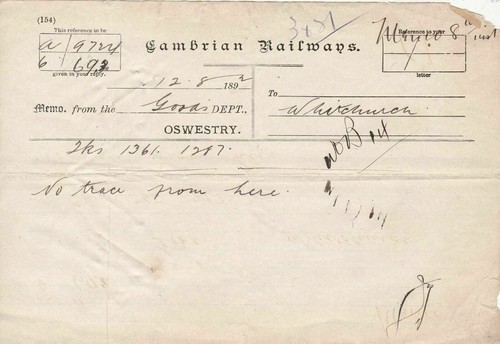 (154)
This reference to be
a/9724
6/692
given in your reply.
3431
Cambrian Railways.
Memo 8th inst
Reference to your
letter
12.8 1892
Memo. from the Goods DEPT.,
OSWESTRY.
To
Whitchurch.
2ks 1361. 1207.
No trace from here.